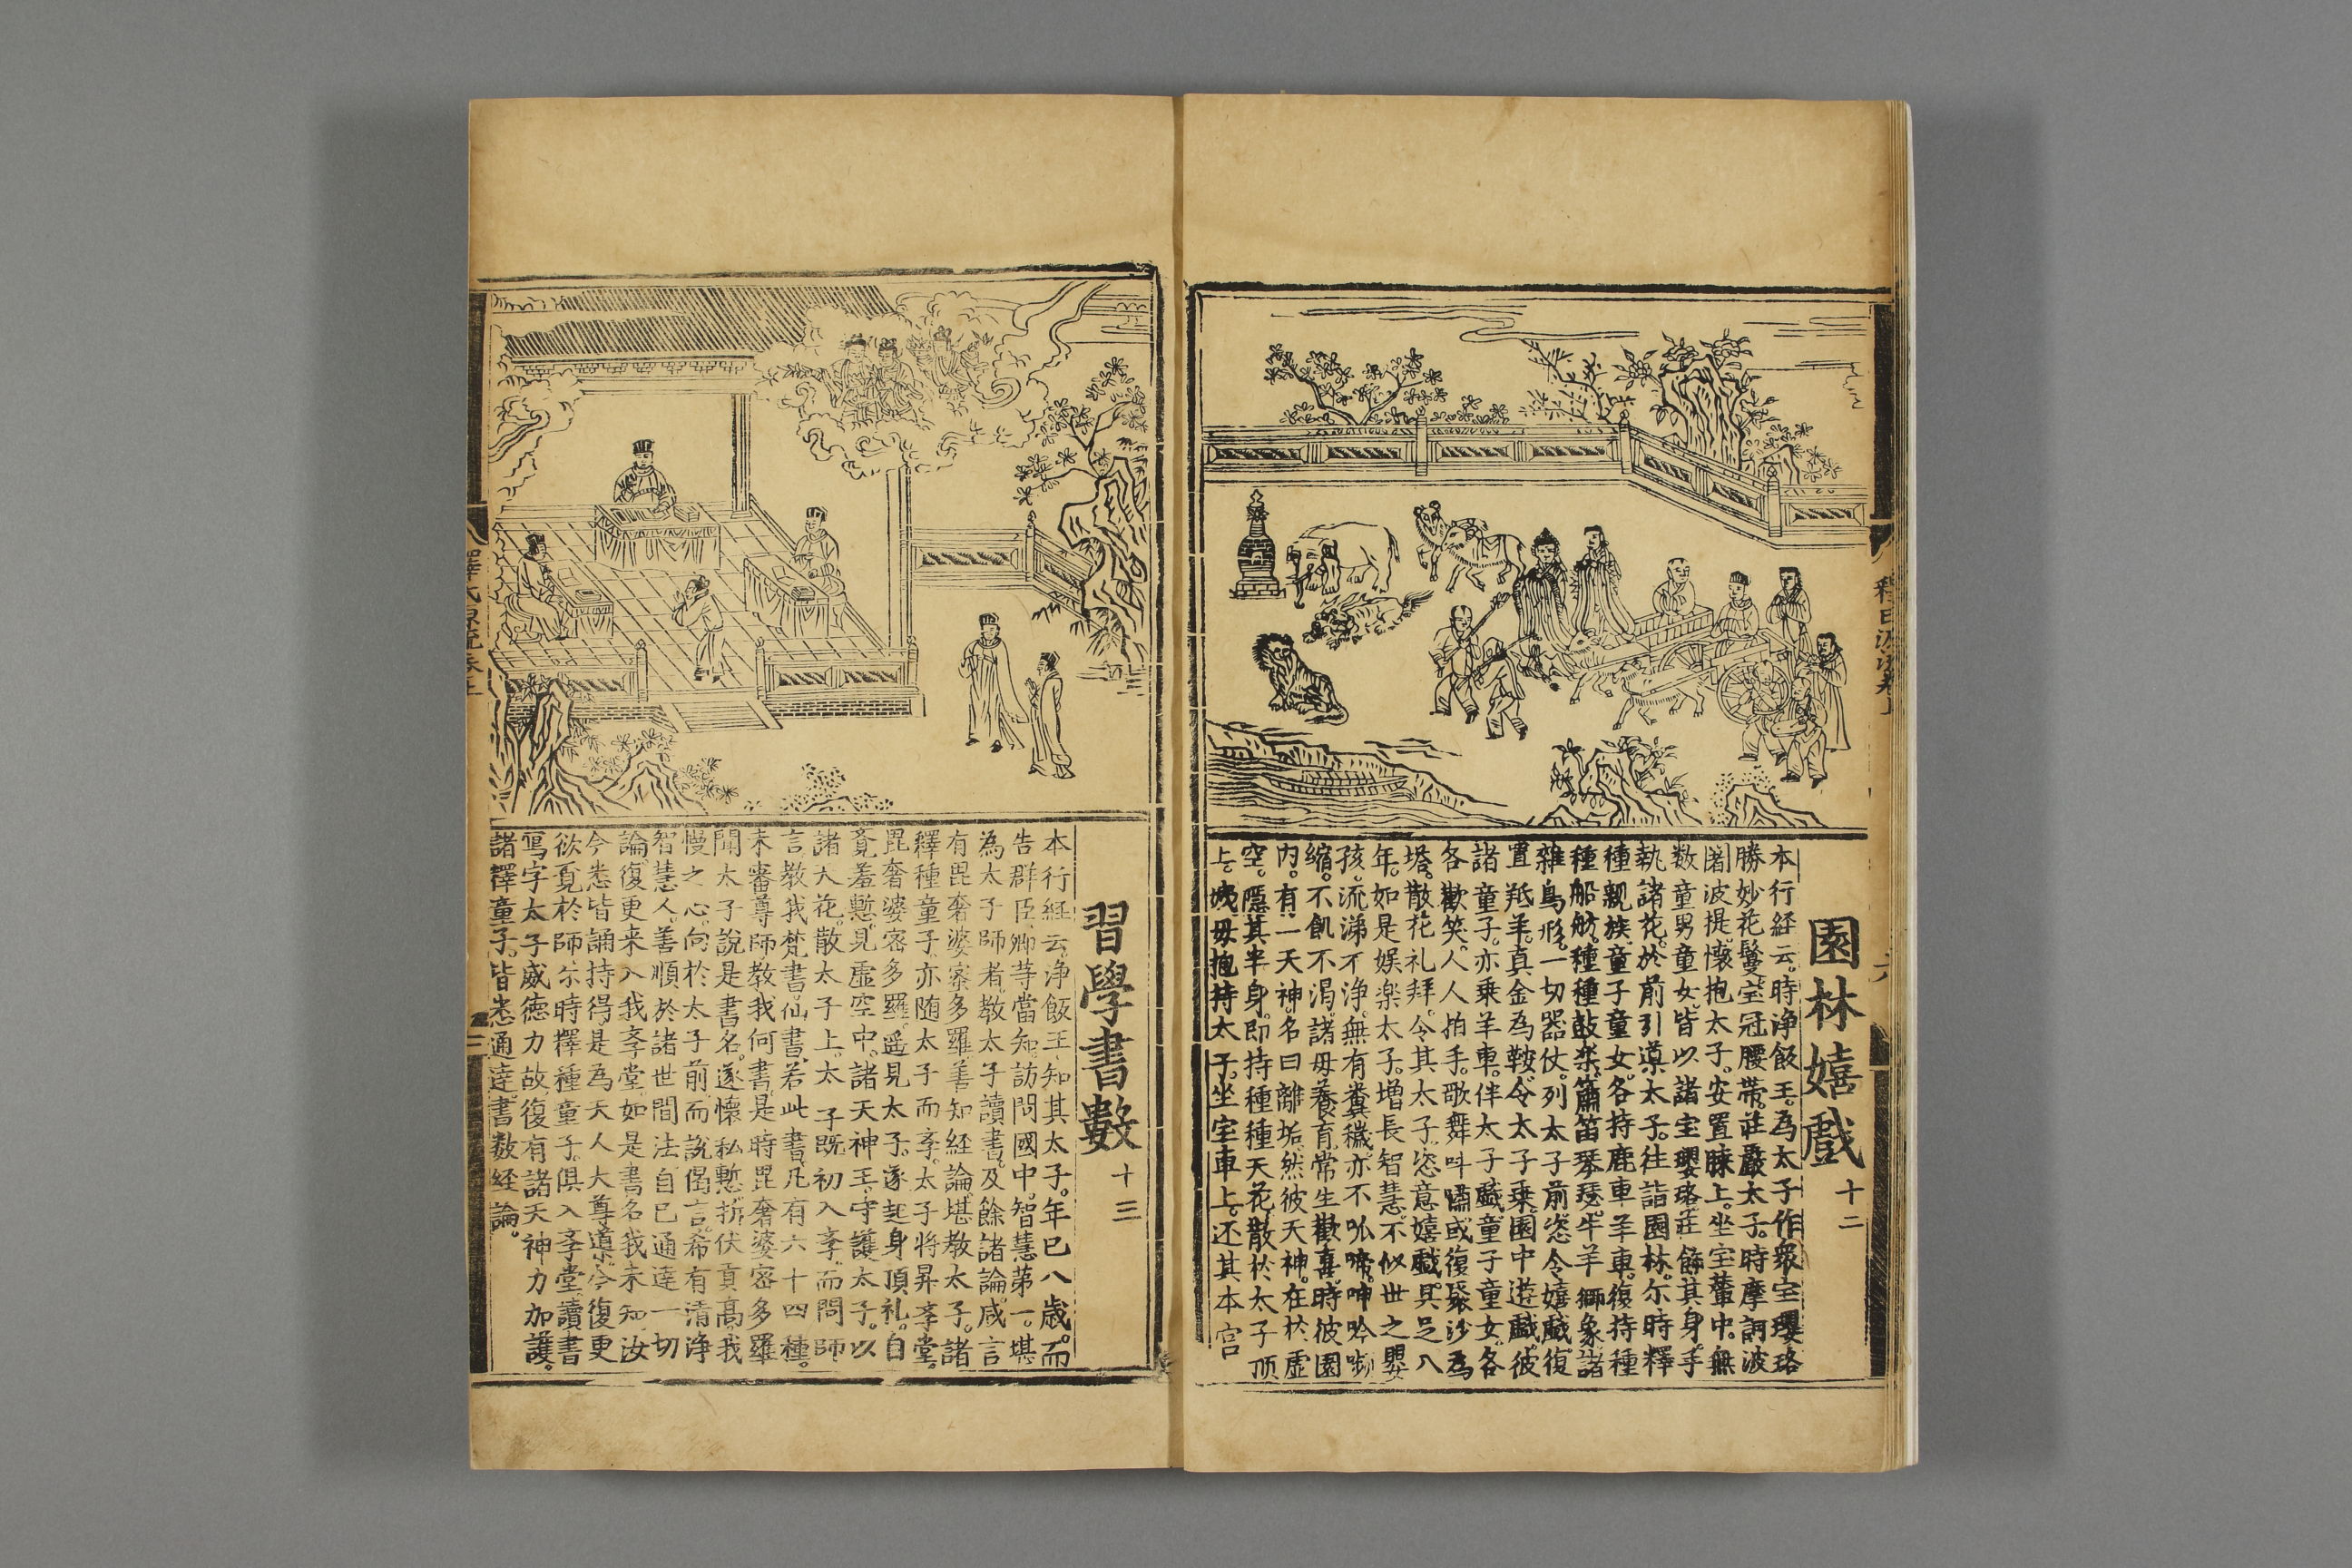 園林嬉戲 十二
本行経云。時浄飯王。為太子作衆宝瓔珞
勝妙花鬘。宝冠腰帶。莊嚴太子。時摩訶波
闍波提。懷抱太子。安置牀上。坐宝輦中。無
数童男童女。皆以諸宝瓔珞。莊餙其身。手
執諸花。於前引導太子。往詣園林。尓時釋
種親族。童子童女。各持鹿車羊車。復持種
種船舫。種種鼓楽。簫笛琴瑟。牛羊獅象。諸
雜鳥形。一切器仗。列太子前。恣令嬉戲。復
置羝羊。真金為鞍。令太子乗。園中遊戲。彼
諸童子。亦乗羊車。伴太子戲。童子童女。各
各歡笑。人人拍手。歌舞呌嘯。或復聚沙為
塔。散花礼拜。令其太子。恣意嬉戲。具足八
年。如是娱楽太子。増長智慧。不似世之嬰
孩。流涕不浄。無有糞穢。亦不呱啼。呻吟嚬
縮。不飢不渴。諸母養育。常生歡喜。時彼園
内。有一天神。名曰離垢。然彼天神。在於虚
空。隱其半身。即持種種天花。散於太子顶
上。姨母抱持太子。坐宝車上。还其本宮
習學書數 十三
本行経云。浄飯王。知其太子。年已八歳。而
告群臣。卿等當知。訪問國中。智慧第一。堪
為太子師者。教太子讀書。及餘諸論。咸言
有毘奢婆宻多羅。善知経論。堪教太子。諸
釋種童子。亦随太子而斈。太子將昇斈堂。
毘奢婆宻多羅。遥見太子。遂起身頂礼。自
覔羞慙。見虚空中。諸天神王。守護太子。以
諸天花。散太子上。太子既初入斈。而問師
言。教我梵書。仙書。若此書。凡有六十四種。
未審尊師。教我何書。是時毘奢婆宻多羅
聞太子說是書名。遂懷私慙。折伏貢高我
慢之心。向於太子前。而說偈言。希有清浄
智慧人。善順於諸世間法。自已通達一切
論。復更来入我斈堂。如是書名我未知。汝
今悉皆誦持得。是為天人大尊導。今復更
欲覔於師。尓時釋種童子。俱入斈堂。讀書
寫字。太子威德力故。復有諸天神力加護。
諸釋童子。皆悉通達。書数経論。